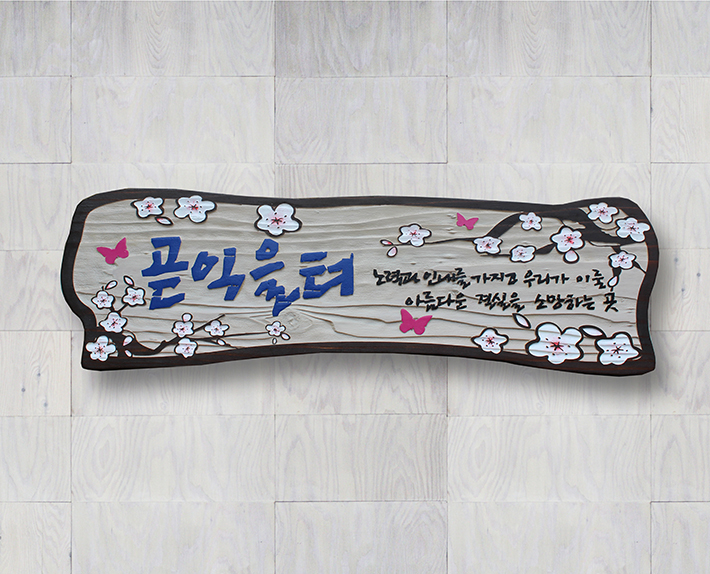 곧익을터
노력과 인내를 가지고 우리가 이룰
아름다운 결실을 소망하는 곳